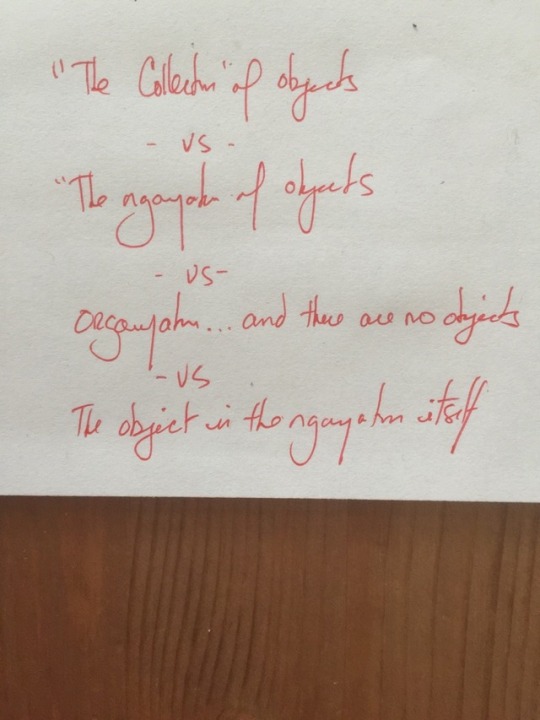 "The Collection" of objects
- vs -
"The organization of objects
- vs -
Organization... and there are no objects
- vs
The object is the organization itself